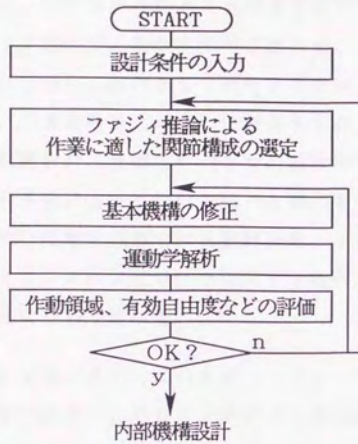 START
設計条件の入力
ファジィ推論による
作業に適した関節構成の選定
基本機構の修正
運動学解析
作動領域、有効自由度などの評価
OK？
n
y
内部機構設計